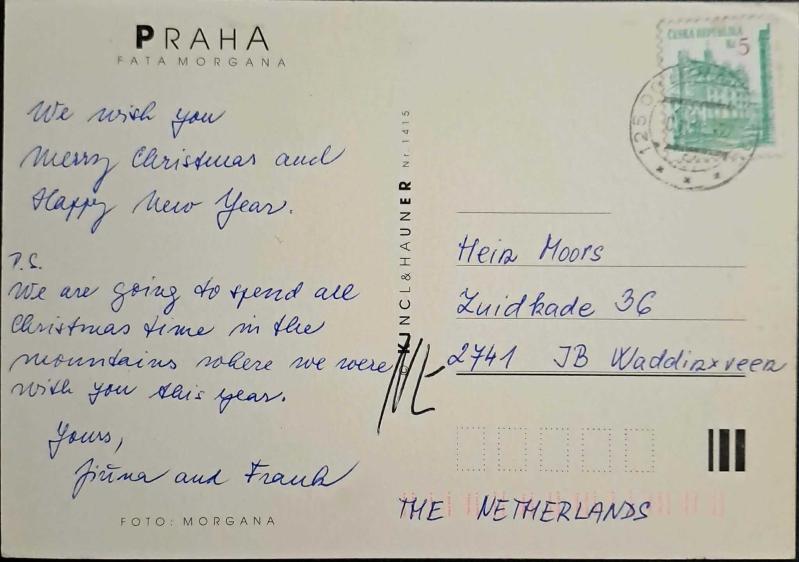 PRAHA
FATA MORGANA
We wish you
Merry Christmas and
Happy New Year.
P.S.
We are going to spend all
Christmas time in the
mountains where we were
with you this year.
Yours,
Jiřina and Frank
FOTO: MORGANA
© KUNCL & HAUNER Nr. 1415
ČESKÁ REPUBLIKA
Kč 5
125 00
Hein Moors
Zuidkade 36
2741 JB Waddinxveen
THE NETHERLANDS